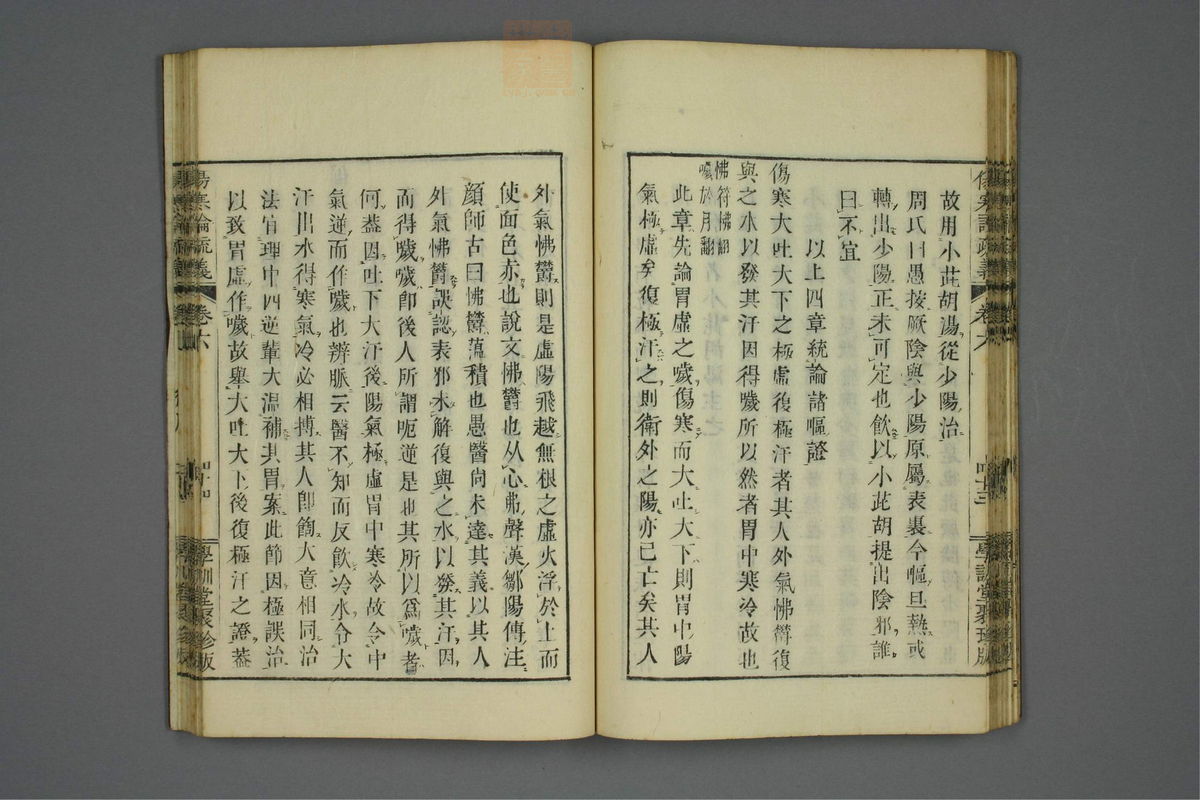 故用小茈胡湯從少陽治
周氏曰愚按厥陰與少陽原屬表裏今嘔且熱或
轉出少陽正未可定也飲以小茈胡提出陰邪誰
曰不宜
以上四章統論諸嘔證
傷寒大吐大下之極虛復極汗者其人外氣怫鬱復
與之水以發其汗因得噦所以然者胃中寒冷故也
怫符怫翻
噦於月翻
此章先論胃虛之噦傷寒而大吐大下則胃中陽
氣極虛矣復極汗之則衛外之陽亦已亡矣其人
傷寒論疏義 卷六 四十三 學訓堂聚珍版
外氣怫鬱則是虛陽飛越無根之虛火浮於上而
使面色赤也說文怫鬱也从心弗聲漢鄒陽傳注
顔師古曰怫鬱薀積也愚醫尚未達其義以其人
外氣怫鬱誤認表邪未解復與之水以發其汗因
而得噦噦卽後人所謂呃逆是也其所以爲噦者
何蓋因吐下大汗後陽氣極虛胃中寒冷故令中
氣逆而作噦也辨脈云醫不知而反飲冷水令大
汗出水得寒氣冷必相搏其人卽䭇大意相同治
法宜理中四逆輩大温補其胃案此節因極誤治
以致胃虛作噦故舉大吐大下後復極汗之證蓋
傷寒論疏義 卷六 四十四 學訓堂聚珍版